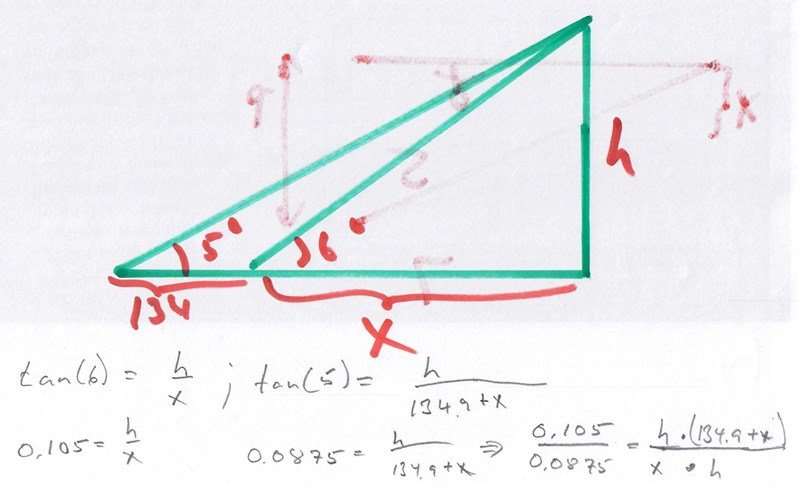 h
5° 6°
134
X
tan(6) = h/x ; tan(5) = h/(134.9+x)
0.105 = h/x 0.0875 = h/(134.9+x) ⇒ 0.105/0.0875 = h·(134.9+x)/(x·h)